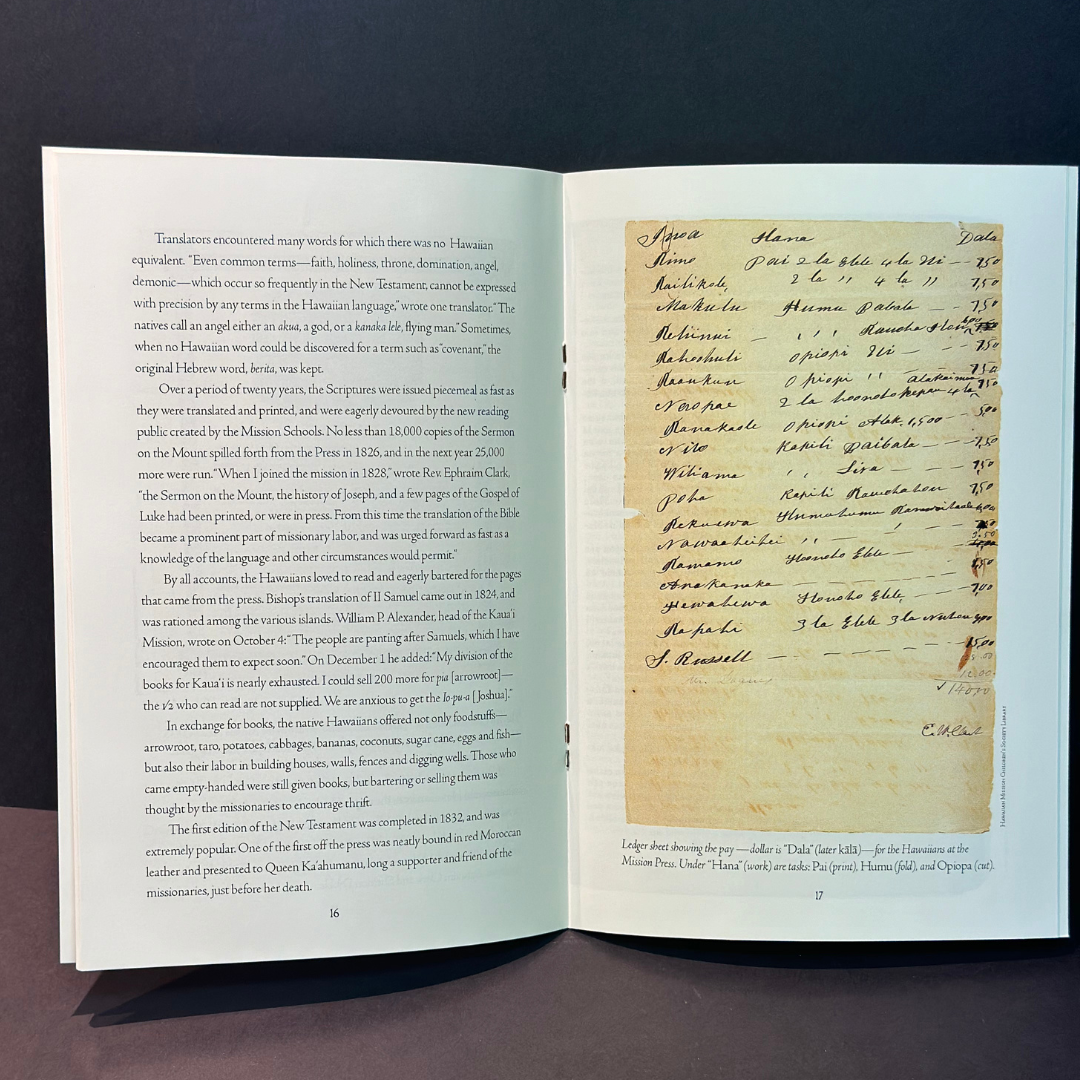 Translators encountered many words for which there was no Hawaiian
equivalent. “Even common terms—faith, holiness, throne, domination, angel,
demonic—which occur so frequently in the New Testament, cannot be expressed
with precision by any terms in the Hawaiian language,” wrote one translator. “The
natives call an angel either an akua, a god, or a kanaka lele, flying man.” Sometimes,
when no Hawaiian word could be discovered for a term such as “covenant,” the
original Hebrew word, berita, was kept.
Over a period of twenty years, the Scriptures were issued piecemeal as fast as
they were translated and printed, and were eagerly devoured by the new reading
public created by the Mission Schools. No less than 18,000 copies of the Sermon
on the Mount spilled forth from the Press in 1826, and in the next year 25,000
more were run. “When I joined the mission in 1828,” wrote Rev. Ephraim Clark,
“the Sermon on the Mount, the history of Joseph, and a few pages of the Gospel of
Luke had been printed, or were in press. From this time the translation of the Bible
became a prominent part of missionary labor, and was urged forward as fast as a
knowledge of the language and other circumstances would permit.”
By all accounts, the Hawaiians loved to read and eagerly bartered for the pages
that came from the press. Bishop’s translation of II Samuel came out in 1824, and
was rationed among the various islands. William P. Alexander, head of the Kaua‘i
Mission, wrote on October 4: “The people are panting after Samuels, which I have
encouraged them to expect soon.” On December 1 he added: “My division of the
books for Kaua‘i is nearly exhausted. I could sell 200 more for pia [arrowroot]—
the 1/2 who can read are not supplied. We are anxious to get the Io-pu-a [Joshua].”
In exchange for books, the native Hawaiians offered not only foodstuffs—
arrowroot, taro, potatoes, cabbages, bananas, coconuts, sugar cane, eggs and fish—
but also their labor in building houses, walls, fences and digging wells. Those who
came empty-handed were still given books, but bartering or selling them was
thought by the missionaries to encourage thrift.
The first edition of the New Testament was completed in 1832, and was
extremely popular. One of the first off the press was neatly bound in red Moroccan
leather and presented to Queen Ka‘ahumanu, long a supporter and friend of the
missionaries, just before her death.
16
Hana Dala
Kimo Pai 2 la Elele 4 la 7,50
Kailikole, 2 la " 4 la " 7,50
Makulu Humu Pabale – 7,50
Keliinui – " "
Opiopi – – 7,50
Opiopi " 7,50
2 la
Kanakaole Opiopi 1,500 – 5,00
Nilo Kapili Paibala – – 7,50
Wiliama " – – 7,50
Poha Kapili 7,50
Kekuewa Humuhumu
Kamamo Honoho Elele – –
Anakanaka – – – –
Hewahewa Honoho Elele – – 7,00
Kapahi 3 la Elele 3 la
S. Russell – – – – 15,00
14000
E. W. Clark
HAWAIIAN MISSION CHILDREN’S SOCIETY LIBRARY
Ledger sheet showing the pay —dollar is “Dala” (later kālā)—for the Hawaiians at the
Mission Press. Under “Hana” (work) are tasks: Pai (print), Humu (fold), and Opiopa (cut).
17